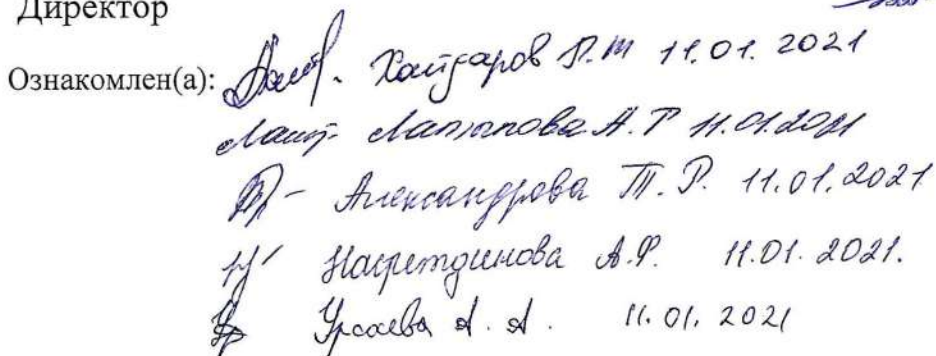 Директор
Ознакомлен(а): Хайдаров Р.Т 11.01.2021
Латыпова А.Р 11.01.2021
Александрова Т.Р. 11.01.2021
Насретдинова А.Ф. 11.01.2021.
А.А. 11.01.2021